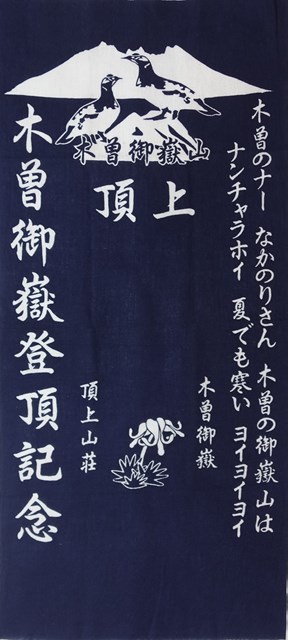 木曽御嶽山
頂上
木曽のナー なかのりさん 木曽の御嶽山は
ナンチャラホイ 夏でも寒い ヨイヨイヨイ
木曽御嶽
頂上山荘
木曽御嶽登頂記念